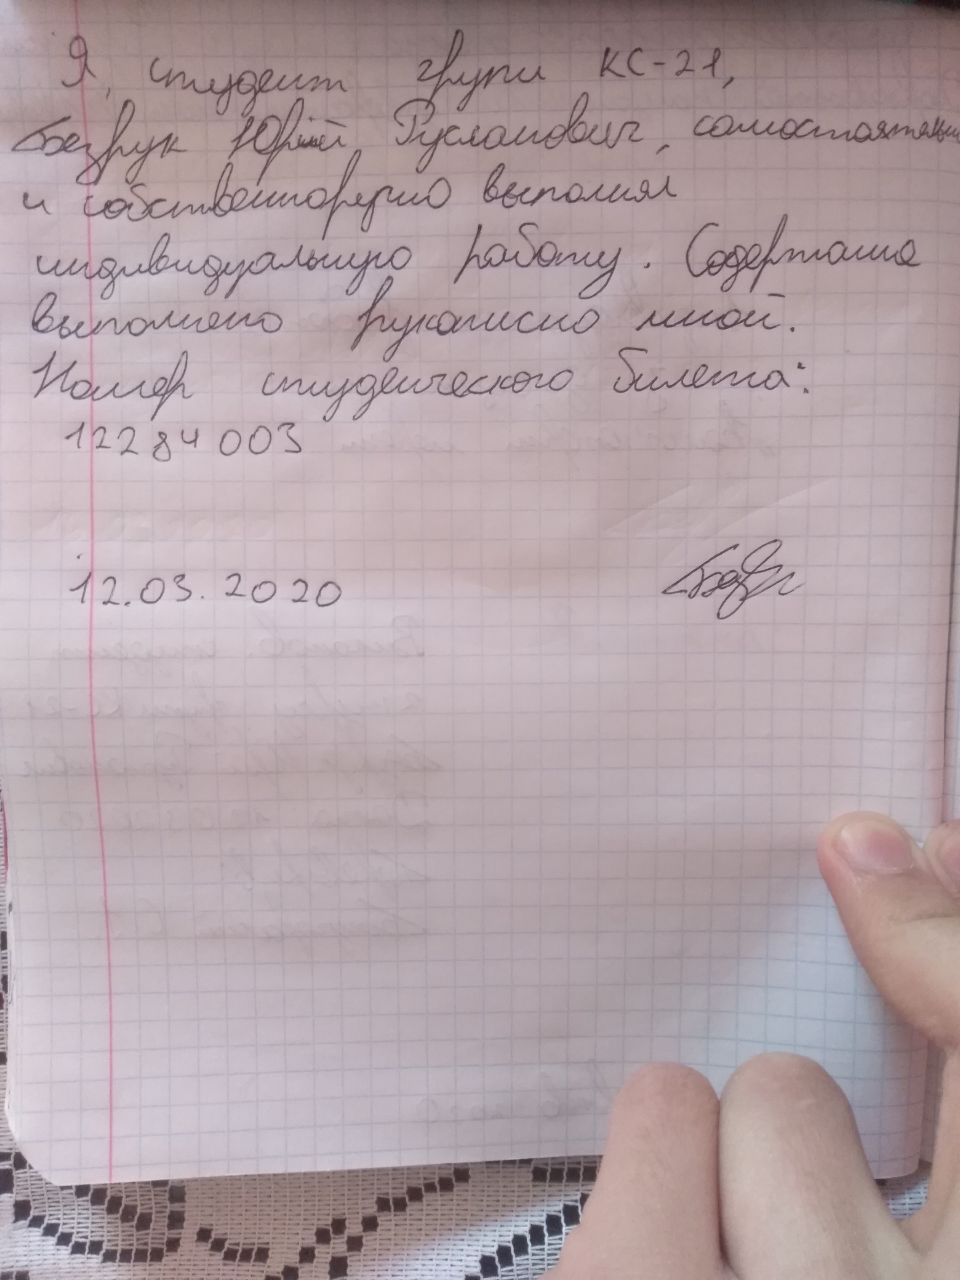 Я, студент групи КС-21,
Безрук Юрий Русланович, самостоятельно
и собственноручно выполнял
индивидуальную работу. Содержание
выполнено рукописно мной.
Номер студенческого билета:
12284003
12.03.2020